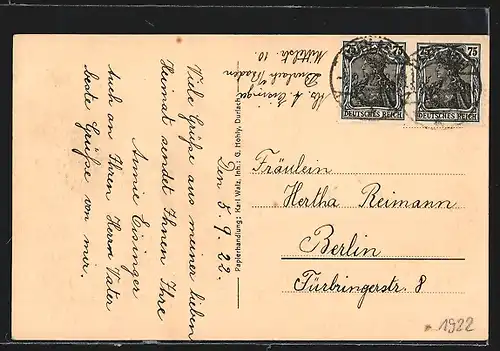 Den 5.9.22.
Viele Grüße aus meiner lieben
Heimat sendet Ihnen Ihre
Annie Eisinger
Auch an Ihren Herrn Vater
beste Grüße von mir.
Eisinger
Durlach Baden
Mittelstr. 10
Papierhandlung: Karl Walz, Inh.: G. Hohly, Durlach
75
75
DEUTSCHES REICH
DEUTSCHES REICH
Fräulein
Hertha Reimann
Berlin
Türbringerstr. 8
1922